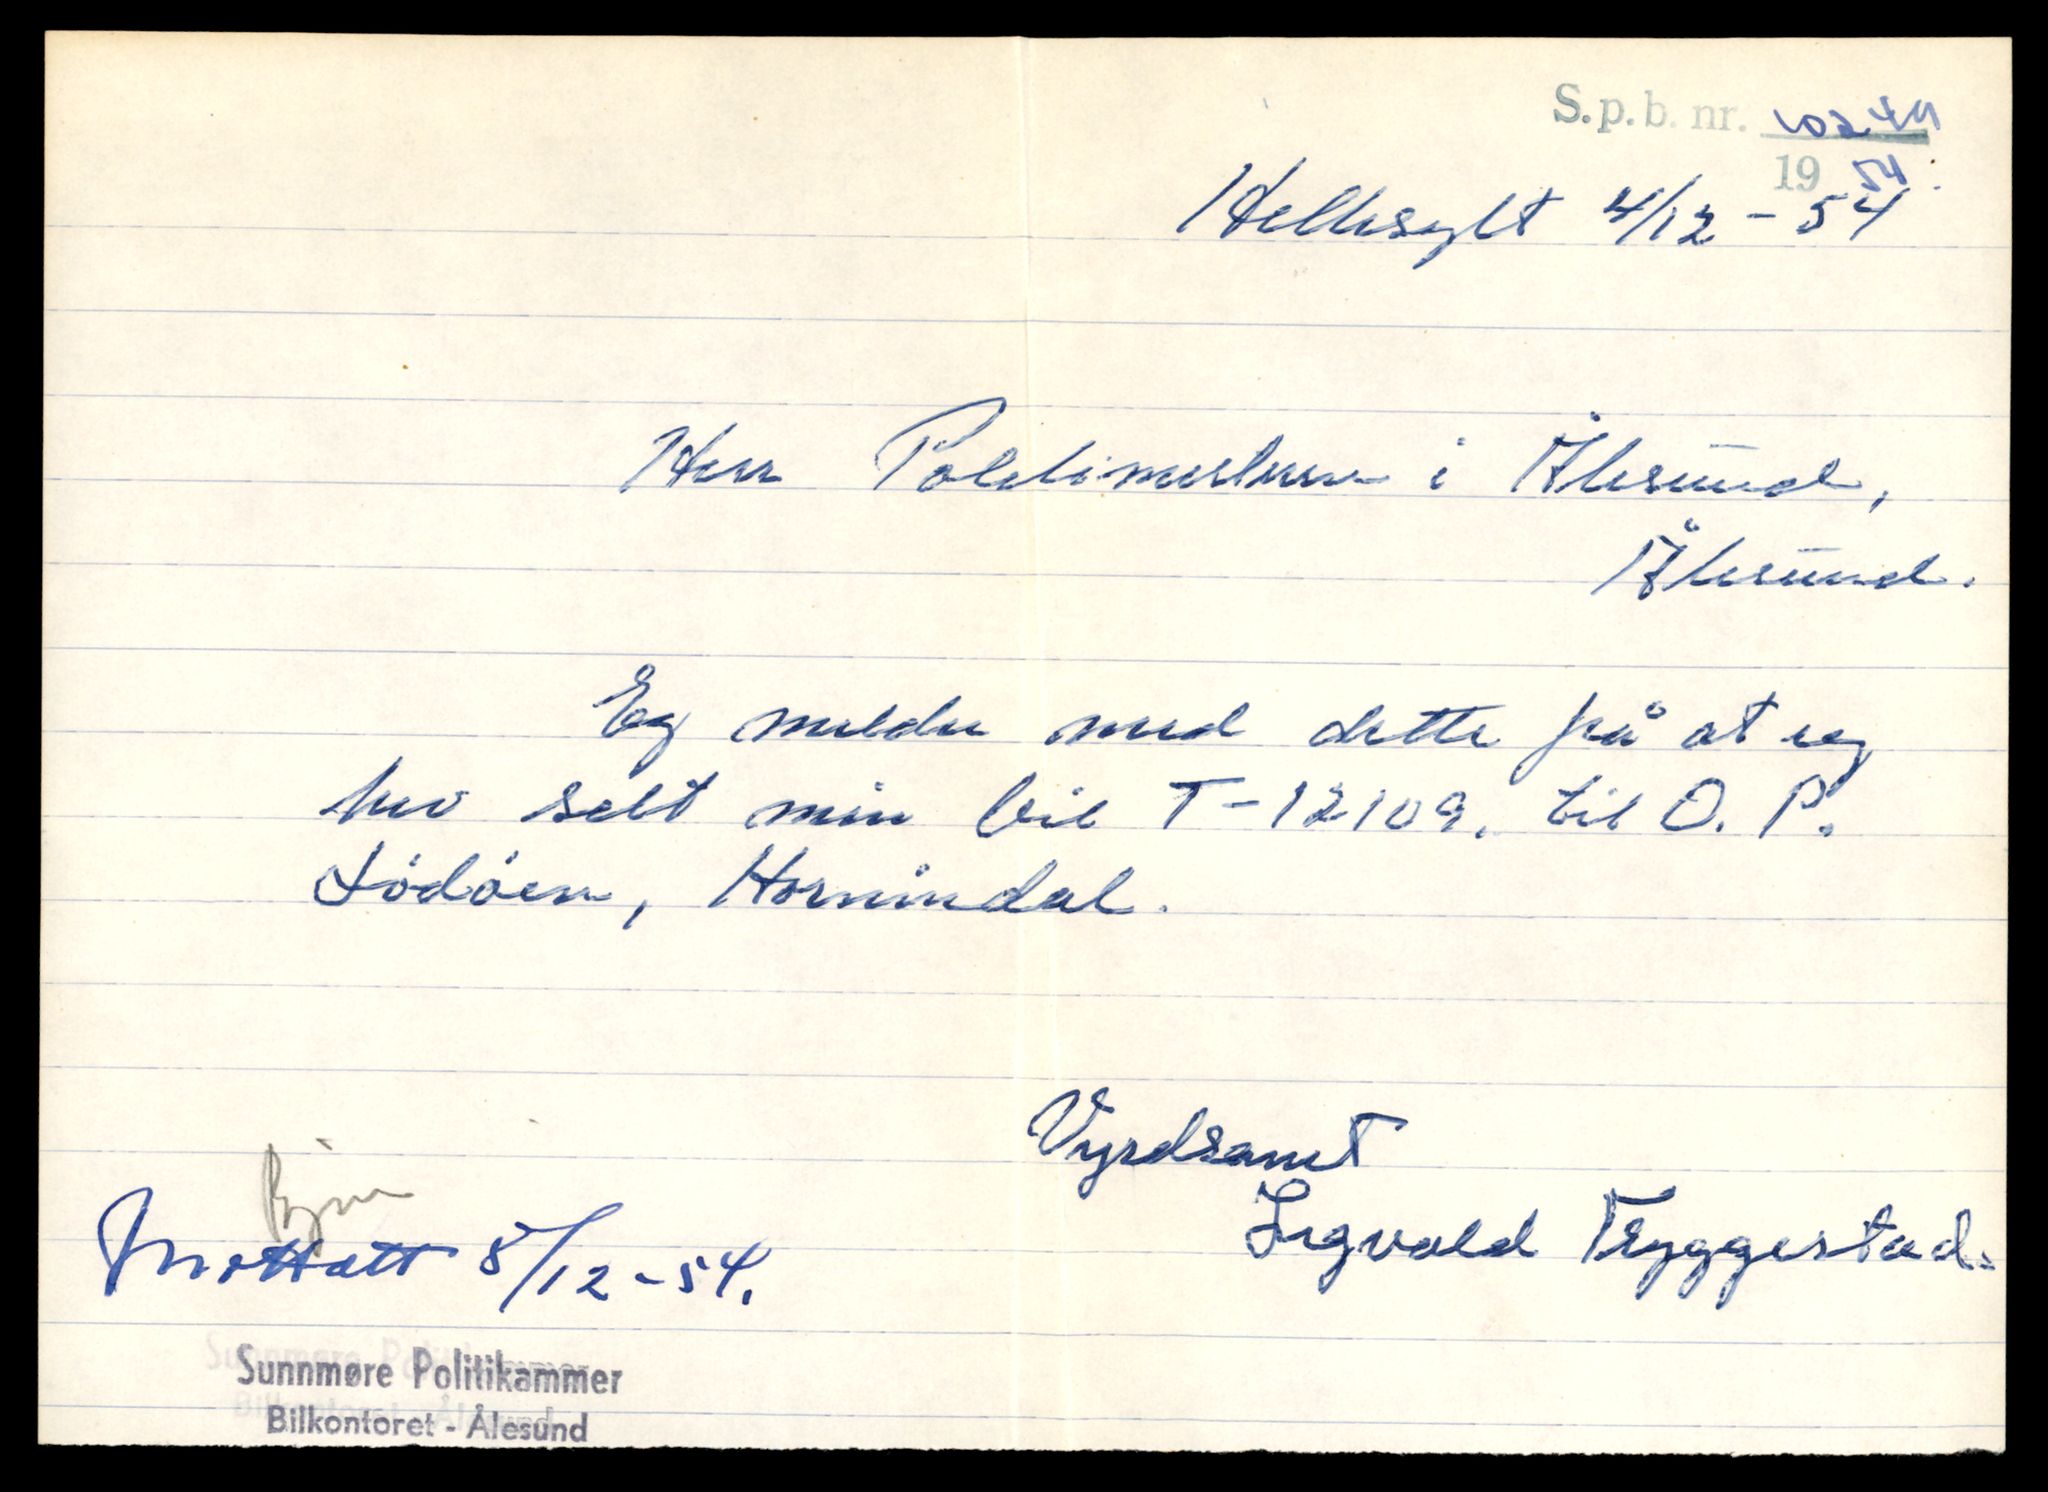 S.p.b. nr. 10244
19 54
Hellesylt 4/12 - 54
Herr Politimesteren i Ålesund,
Ålesund.
Eg melder med dette frå at eg
hev selt min bil T-12109. til O. P.
Lödöen, Hornindal.
Vyrdsamt
Ingvald Tryggestad.
Mottatt 8/12-54.
Sunnmøre Politikammer
Bilkontoret - Ålesund